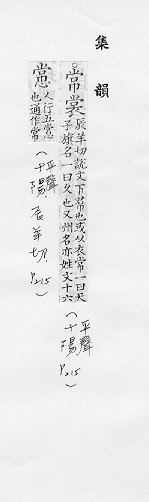 集韻
常裳辰羊切說文下帬也或从衣常一曰天
子旗名一曰久也又州名亦姓文十六
(平聲
十陽
P.215)
㦂人行五㦂
也通作常
(平聲
十陽,辰羊切,
P.215)